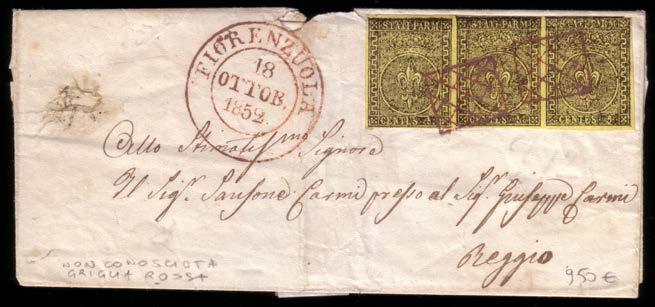 FIORENZUOLA
18
OTTOB.
1852.
STATI PARM.
CENTES. 5
STATI PARM.
CENTES. 5
STATI PARM.
CENTES. 5
Allo Stimatissmo Signore
Il Sigr. Sansone Carmi presso al Sigr. Giuseppe Carmi
Reggio
NON CONOSCIUTA
GRIGLIA ROSSA
950 €